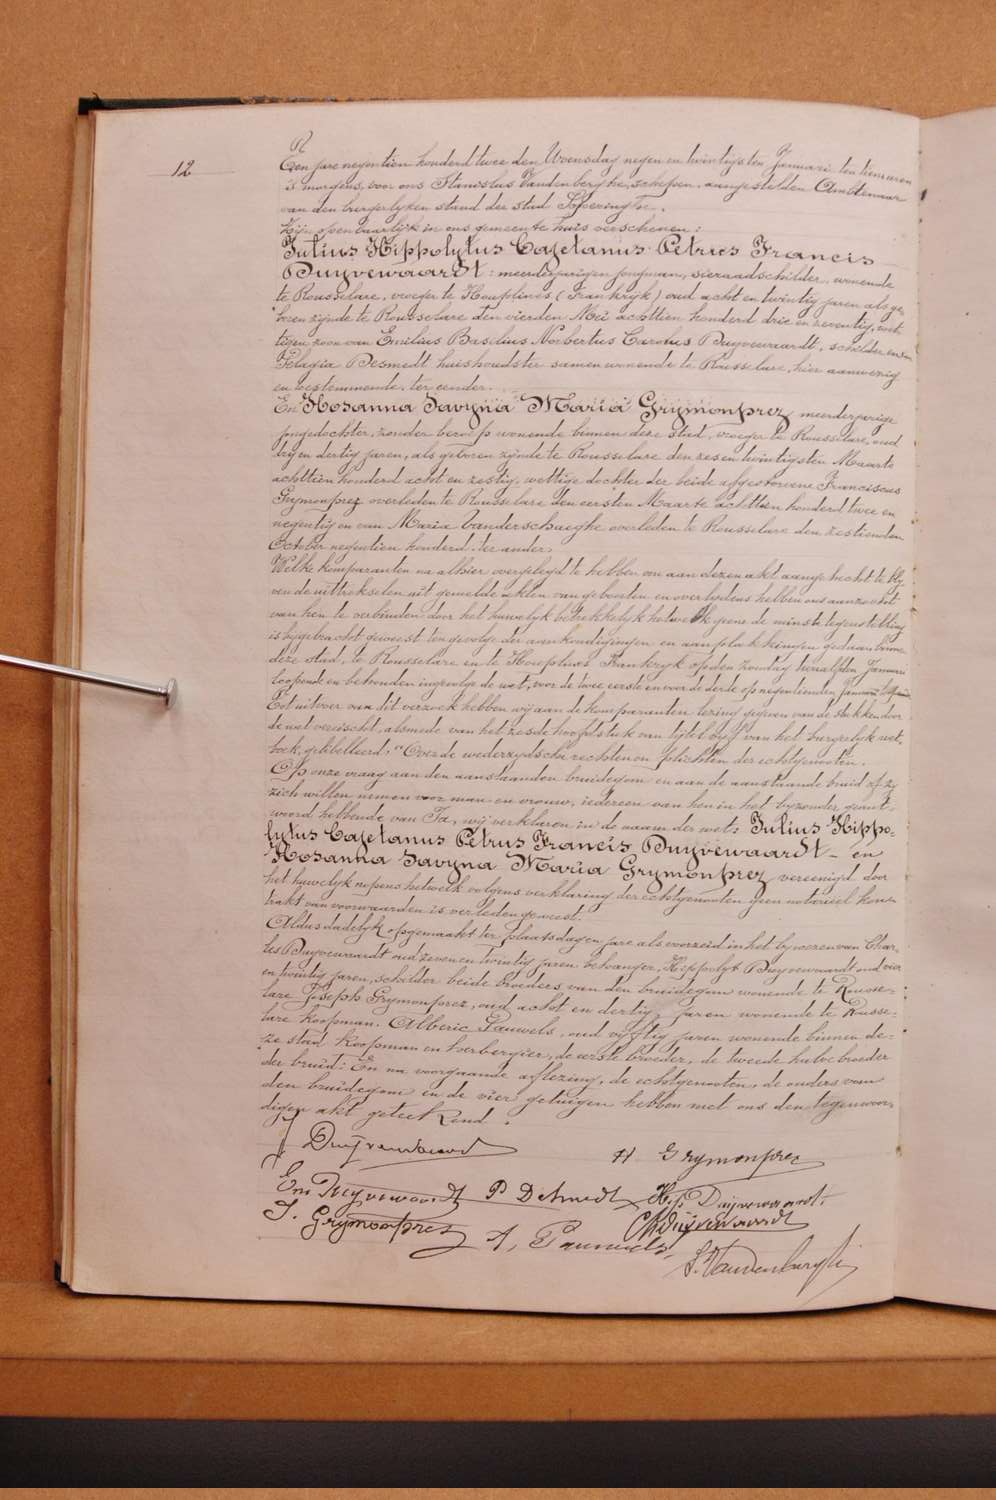 12
Een jare negentien honderd twee den Woensdag negen en twintigsten Januari ten tien uren
's morgens, voor ons Stanislus Vandenberghe, schepen, aangestelden Ambtenaar
van den burgerlyken stand der stad Poperinghe.
Zijn openbaarlijk in ons gemeente huis verschenen:
Julius Hippolytus Cajetanus Petrus Francis
Duyvewaardt: meerderjarigen jongman, sieraadschilder, wonende
te Rousselare, vroeger te Houplines (Frankrijk) oud acht en twintig jaren als ge-
boren zijnde te Rousselare den vierden Mei achttien honderd drie en zeventig, wet-
tigen zoon van Emilius Basilius Norbertus Carolus Duyvewaardt, schilder en van
Pelagia Desmedt huishoudster samenwonende te Rousselare, hier aanwezig
en toestemmende, ter eender.
En Hosanna Savyna Maria Grymonprez meerderjarige
jongedochter, zonder beroep wonende binnen deze stad, vroeger te Rousselare, oud
drij en dertig jaren, als geboren zijnde te Rousselare den zes en twintigsten Maarte
achttien honderd acht en zestig, wettige dochter der beide afgestorvene Franciscus
Grymonprez overleden te Rousselare den eersten Maarte achttien honderd twee en
negentig en van Maria Vanderschaeghe overleden te Rousselare den zestienden
October negentien honderd, ter ander.
Welke komparanten na alhier overgelegd te hebben om aan dezen akt aangehecht te bly-
ven de uittrekselen uit gemelde akten van geboorten en overlydens hebben ons aanzocht
van hen te verbinden door het huwelyk betrekkelyk hetwelk geene de minste tegenstelling
is bygebracht geweest ten gevolge der aankondigingen en aanplakkingen gedaan binnen
deze stad, te Rousselare en te Houplines Frankryk op den zondag twaalfden Januari
loopende en behouden ingevolge de wet, voor de twee eerste en voor de derde op negentienden Januari
Tot uitvoer van dit verzoek hebben wij aan de komparanten lezing gegeven van de stukken door
de wet vereischt, alsmede van het zesde hoofdstuk van tijtel vyf van het burgerlyk wet-
boek, gelibelleerd: "Over de wederzydsche rechten en plichten der echtgenooten.
Op onze vraag aan den aanstaanden bruidegom en aan de aanstaande bruid of zy
zich willen nemen voor man en vrouw, iedereen van hen in het byzonder geant-
woord hebbende van Ja, wij verklaren in de naam der wet: Julius Hippo-
lytus Cajetanus Petrus Francis Duyvewaardt - en
Hosanna Savyna Maria Grymonprez vereenigd door
het huwelyk nopens hetwelk volgens verklaring der echtgenooten geen notarieel kon-
trakt van voorwaarden is verleden geweest.
Aldus dadelyk opgemaakt ter plaats dag en jare als voorzeid in het bywezen van Char-
les Duyvewaardt oud zeven en twintig jaren behanger, Hippolyt Duyvewaardt oud vier
en twintig jaren, schilder beide broeders van den bruidegom wonende te Rousse-
lare Joseph Grymonprez, oud acht en dertig jaren wonende te Rousse-
lare koopman. Alberic Pauwels, oud vyftig jaren wonende binnen de-
ze stad koopman en herbergier, de eerste broeder, de tweede halve broeder
der bruid: En na voorgaande aflezing, de echtgenooten, de ouders van
den bruidegom en de vier getuigen hebben met ons den tegenwoor-
digen akt geteekend.
J Duijvewaardt
H Grymonprez
Em Duyvewaardt P Desmedt Hip. Duijvewaardt
J. Grymonprez Ch Duijvewaardt
A, Pauwels
S. Vandenberghe